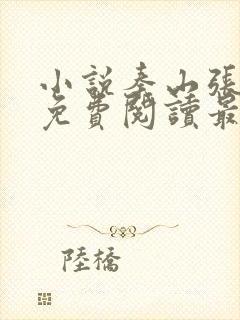 小說奉山張
免費閱讀最
陸橋